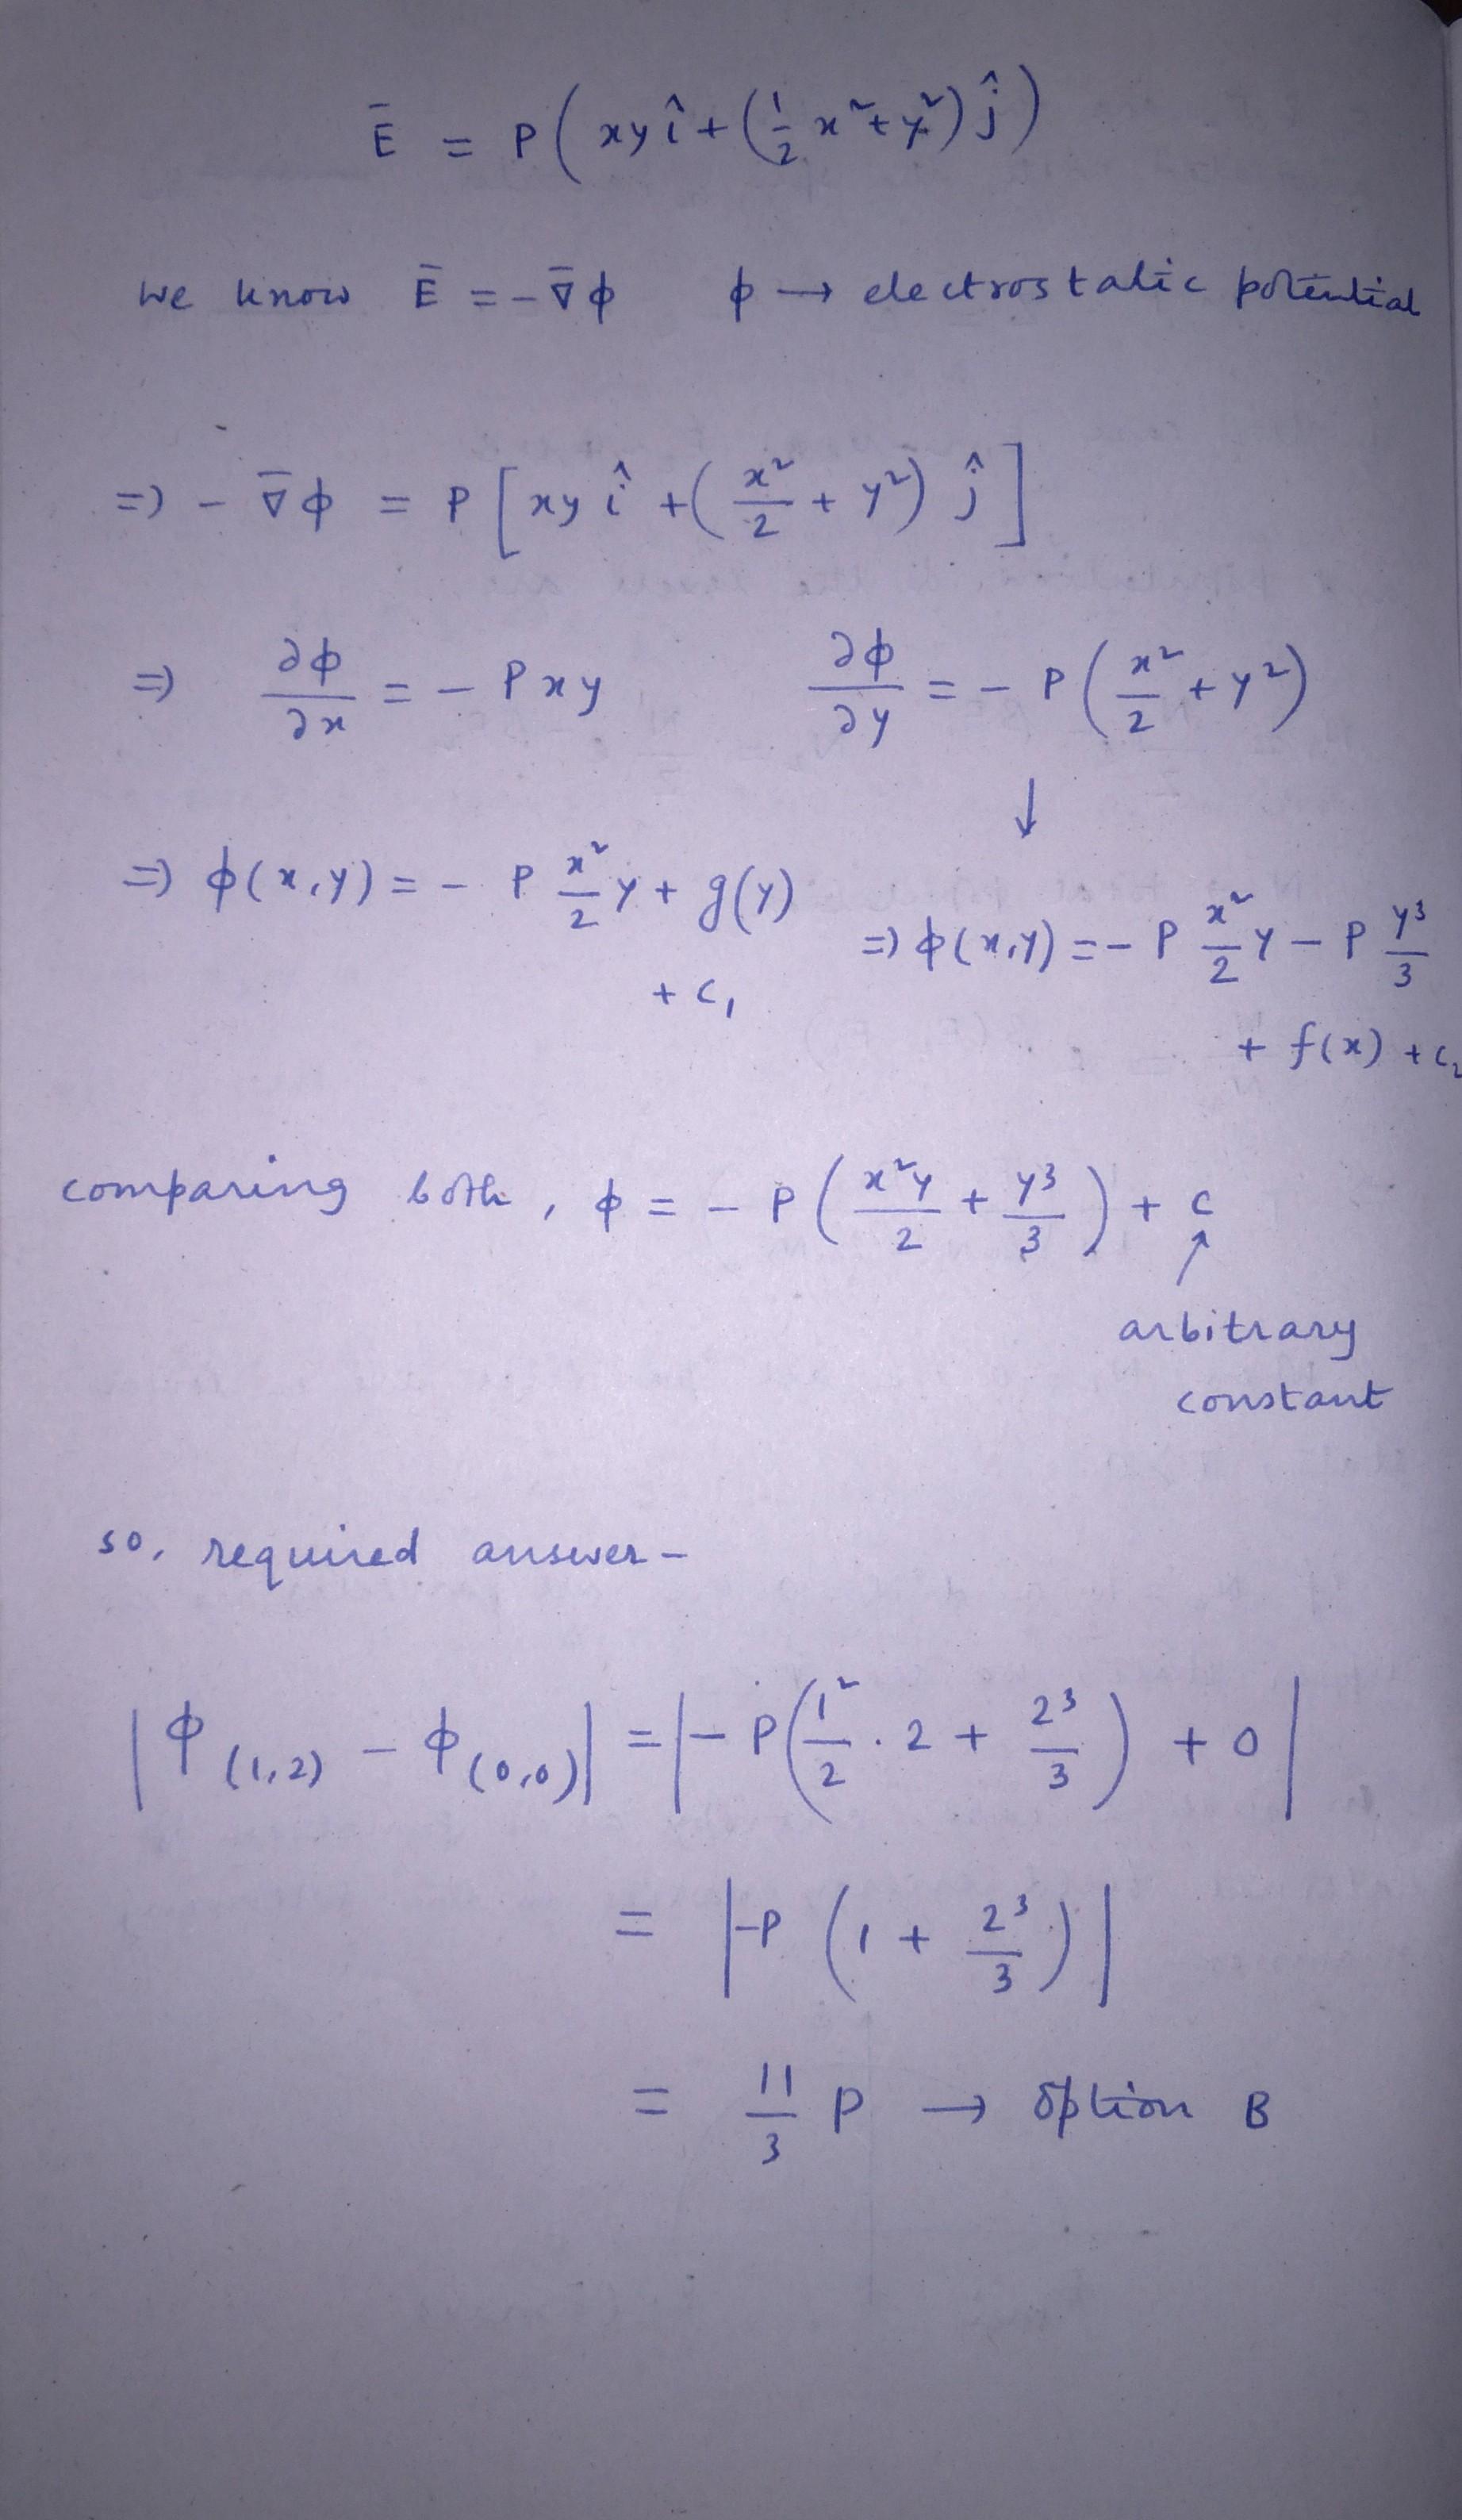 Ē = P(xy î + (1/2 x² + y²) ĵ)
we know Ē = - ∇̄φ φ → electrostatic potential
=) - ∇̄φ = P [xy î + (x²/2 + y²) ĵ]
=) ∂φ/∂x = - Pxy ∂φ/∂y = - P(x²/2 + y²)
↓
=) φ(x,y) = - P x²/2 y + g(y) + c₁
=) φ(x,y) = - P x²/2 y - P y³/3 + f(x) + c₂
comparing both, φ = - P(x²y/2 + y³/3) + c
↑
arbitrary
constant
so, required answer -
|φ(1,2) - φ(0,0)| = |- P(1²/2 . 2 + 2³/3) + 0|
= |-P (1 + 2³/3)|
= 11/3 P → option B